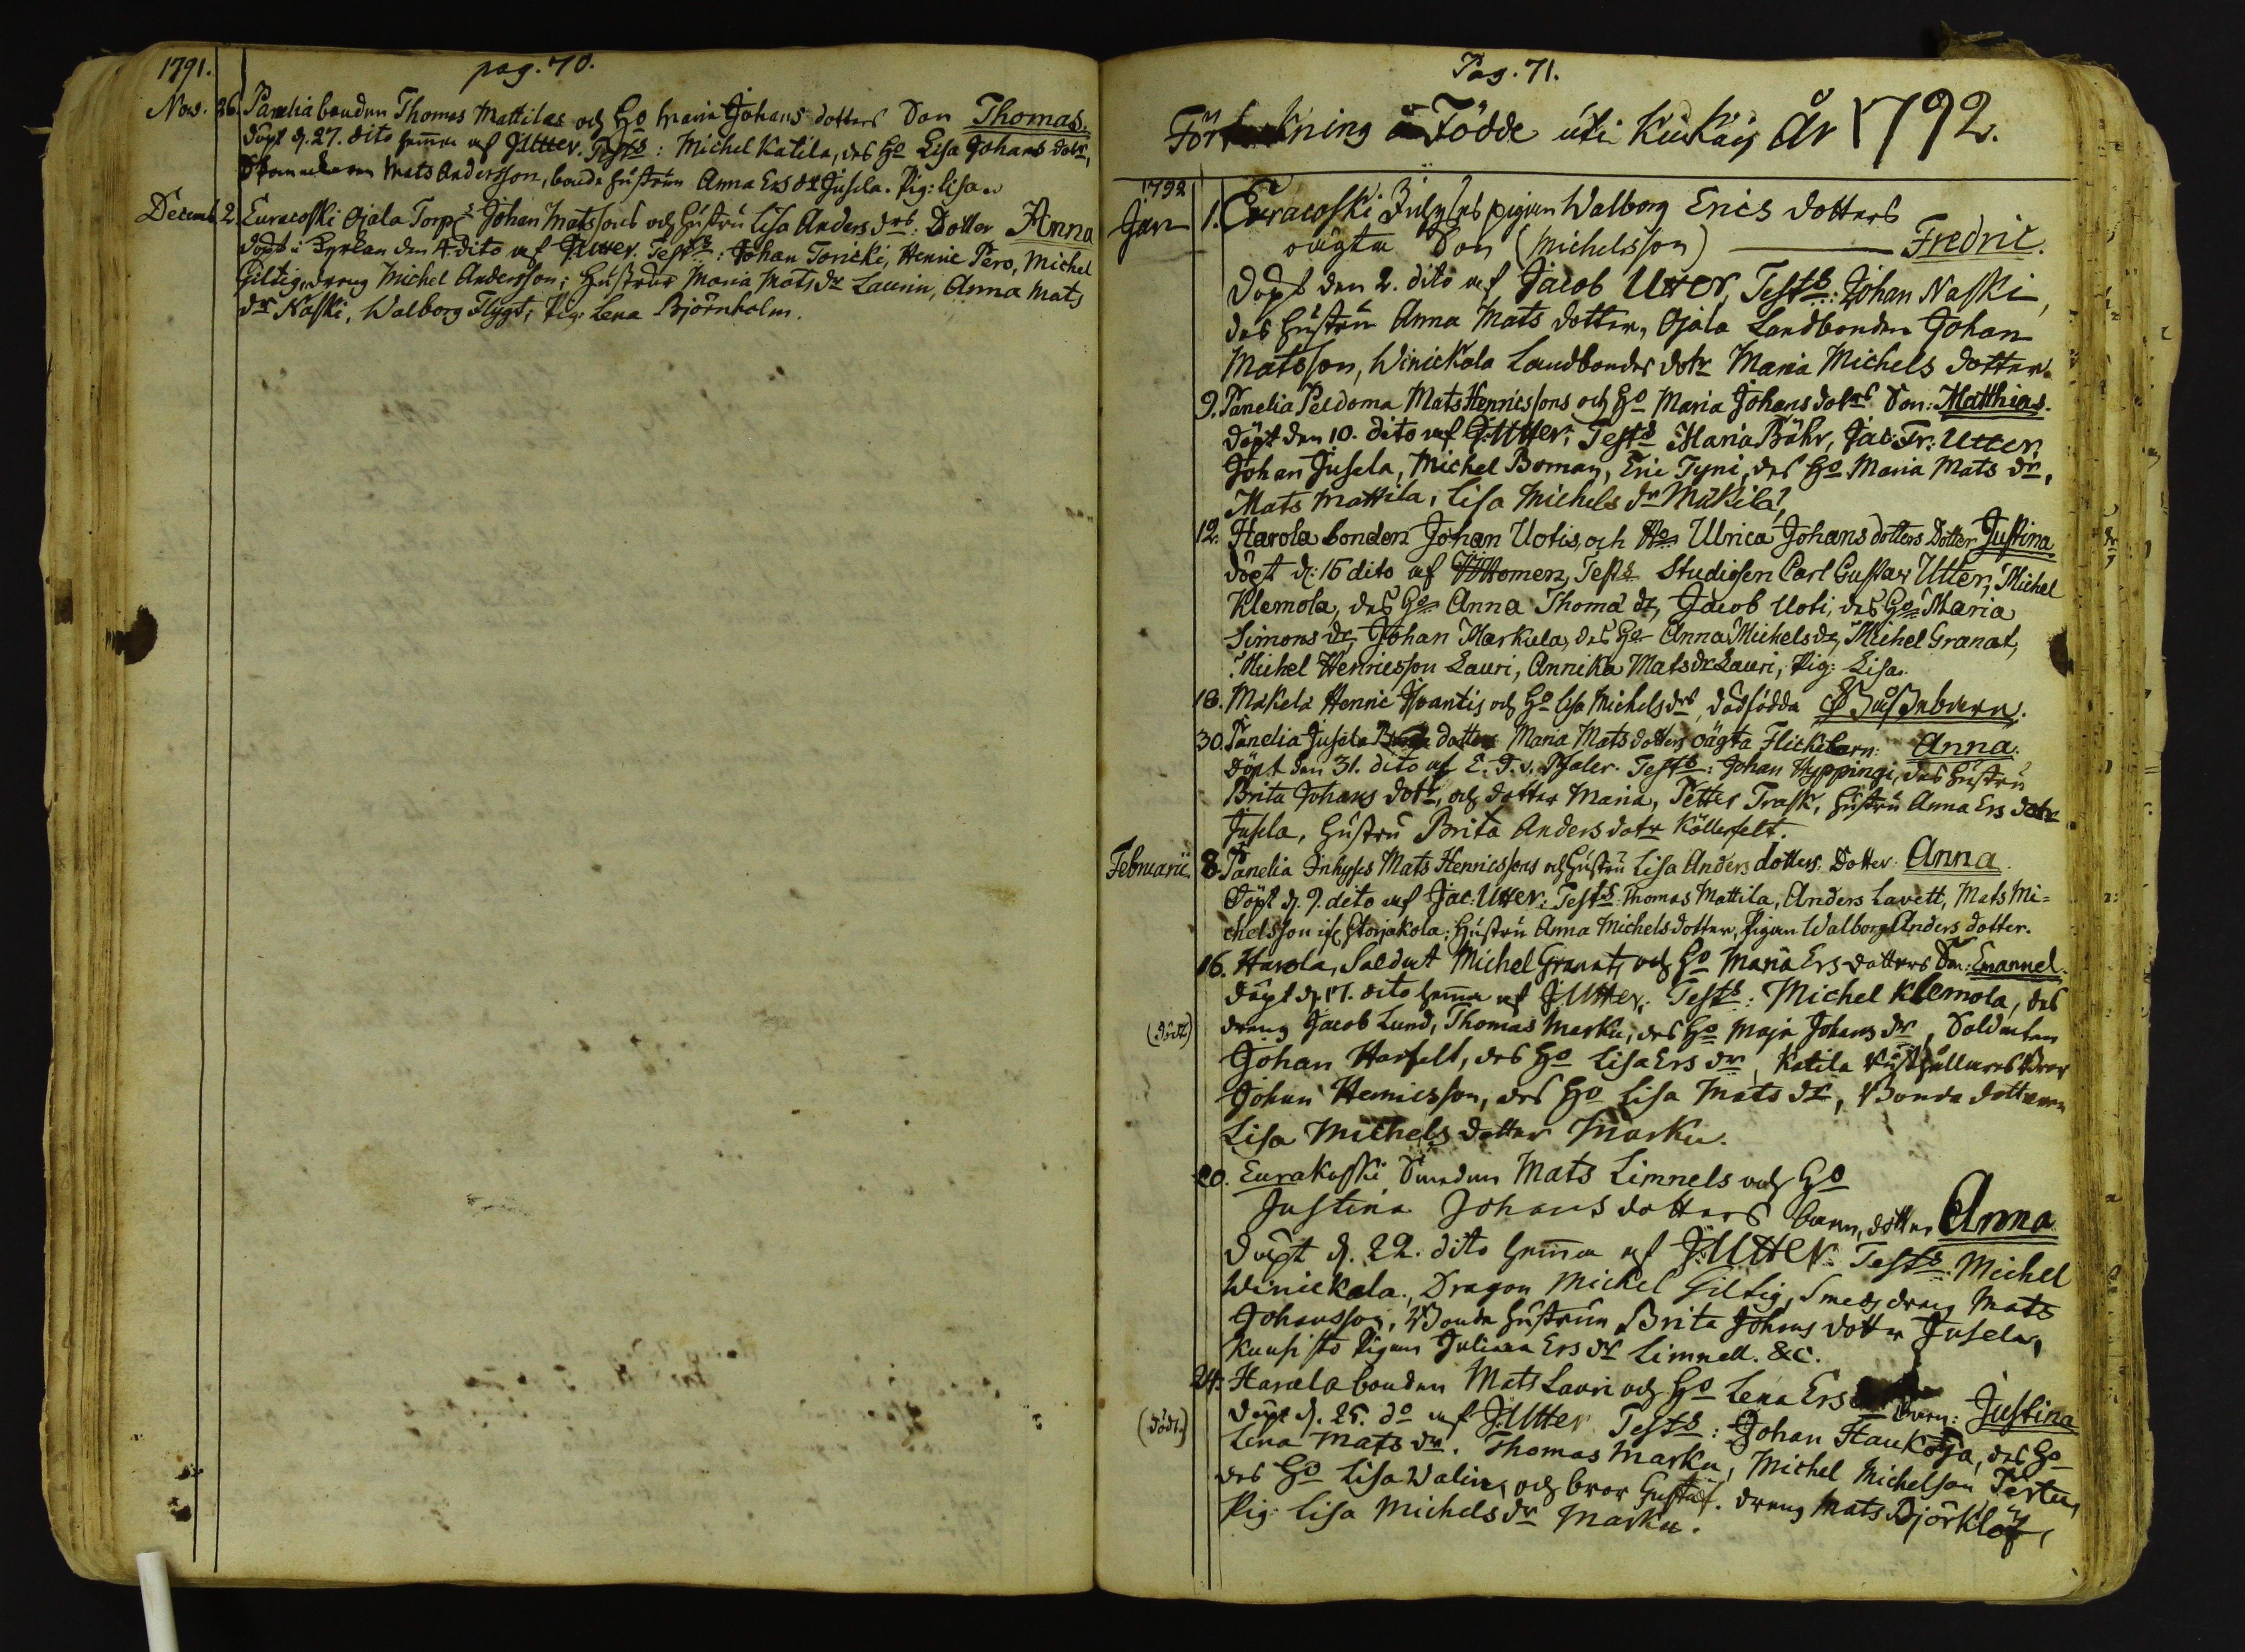 1791.
pag. 70.
Nov. 26. Panelia bonden Thomas Mattilas och Ho Maria Johans dotters Son Thomas.
döpt d. 27. dito hema af J:Utter. Tests: Michel Katila, des Ho Lisa Johans dotr,
Mats Andersson, bonde hustrun Anna Ers dr Jusela. Pig: Lisa
Decemb. 2. Euracoski Ojala Torp: Johan Matssons och hustru Lisa Anders drs: Dotter Anna
döpt i Kyrkan den 4. dito af J:Utter. Tests: Johan Toricki, Henric Pero, Michel
Giltig, dreng Michel Andersson; Hustrur Maria Mats dr Laurin, Anna Mats
dr Naski, Walborg Flygt; Pig: Lena Björnholm.
Pag. 71.
Födde uti Kiukais År 1792.
1792
Jan 1. Euracoski Inhyses pigan Walborg Erics dotters
oägta Son (Michelsson) Fredric.
Döpt den 2. dito af Jacob Utter, Tests: Johan Naski,
des hustru Anna Mats dotter, Ojala Landbonden Johan
Matsson, Winickala Landbondes dotr Maria Michels dotter.
9. Panelia Peldoma Mats Henricssons och Ho Maria Johans dotrs Son: Matthias.
döpt den 10. dito af J:Utter, Tests Maria Bähr, Jac: Fr: Utter,
Johan Jusela, Michel Boman, Eric Tyni, des Ho Maria Mats dr,
Mats Mattila, Lisa Michels dr Mäkilä,
12. Harola bonden Johan Uotis, och Ho Ulrica Johans dotters Dotter Justina.
döpt d: 15 dito af Tests Studiosen Carl Gustav Utter, Michel
Klemola, des Ho Anna Thoma dr, Jacob Uoti, des Ho Maria
Simons dr, Johan Markula, des Ho Anna Michels dr, Michel Granat,
Michel Henricsson Lauri, Annika Mats dr Lauri, Pig: Lisa.
18. Makela Henric Ivantis och Ho Lisa Michels drs, dödfödda Gåssebarn.
30. Panelia Jusela dotter Maria Mats dotters oägta Flickebarn: Anna.
Döpt den 31. dito af E. J. v. Pfaler. Tests: Johan Hyppingi, des hustru
Brita Johans dotr, och dotter Maria, Petter Trask, hustru Anna Ers dotr
Jusela, hustru Brita Anders dotr Köllerfelt.
Februarii 8. Panelia Inhyses Mats Henricssons och hustru Lisa Anders dotters Dotter: Anna.
Döpt d. 9. dito af Jac: Utter: Tests: Thomas Mattila, Anders Lavett, Mats Mi=
chelsson Storjakola; Hustru Anna Michelsdotter, Pigan Walborg Anders dotter.
16. Harola, Soldat Michel Granats och Ho Maria Ers dotters Son: Emanuel.
döpt d. 17. dito hema af J:Utter, Tests: Michel Klemola, des
(dödt) dreng Jacob Lund, Thomas Marku, des Ho Maja Johans dr, Soldaten
Johan Harfelt, des Ho Lisa Ers dr, Katila
Johan Henricsson, des Ho Lisa Mats dr, Bonde dottern
Lisa Michels dotter Marku.
20. Eurakoski Smeden Mats Limnels och Ho
Justina Johans dotters barn, dotter Anna
Döpt d. 22. dito hema af J:Utter. Tests: Michel
Winickala, Dragon Michel Giltig, Smeds dreng Mats
Johansson, Bonde hustrun Brita Johans dotter Jusela,
Kuusisto Pigan Juliana Ers dr Limnell. &c.
24. Harola bonden Mats Lauri och Ho Lena Ers Barn: Justina
(dödt.) Döpt d. 25. do af J:Utter Tests: Johan Haukoja, des Ho
Lena Mats dr. Thomas Marku, Michel Michelson Pertu,
des Ho Lisa Walin, och bror Gustaf. dreng Mats Björklöf,
Pig: Lisa Michels dr Marku.